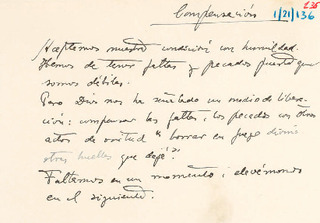 Compensación
1/21/136
Aceptemos nuestra condición con humildad.
Hemos de tener faltas y pecados puesto que
somos débiles.
Pero Dios nos ha señalado un medio de libera-
ción: compensar las faltas, los pecados con otros
actos de virtud "borrar en fuego
otras huellas que dejé".
Faltemos en un momento; elevémonos
en el siguiente.